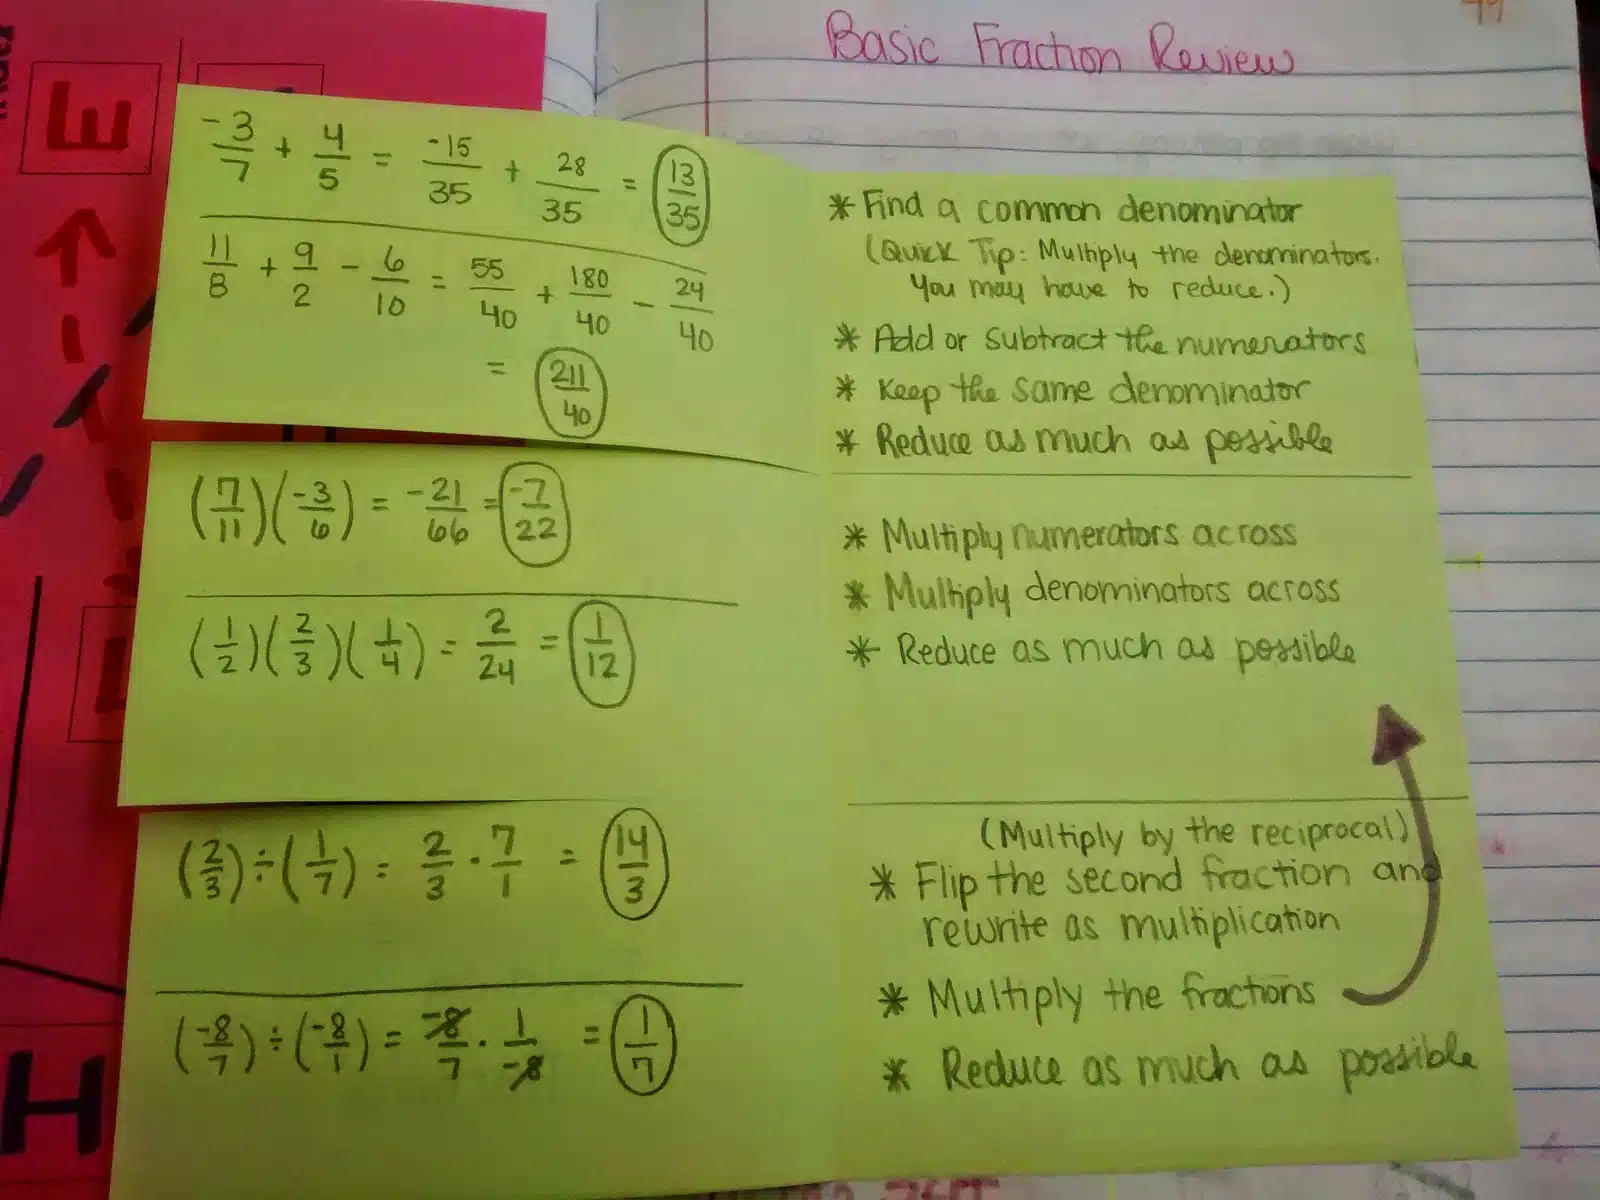 Basic Fraction Review
E
-3/7 + 4/5 = -15/35 + 28/35 = 13/35
11/8 + 9/2 - 6/10 = 55/40 + 180/40 - 24/40
= 211/40
* Find a common denominator
(Quick Tip: Multiply the denominators.
You may have to reduce.)
* Add or subtract the numerators
* Keep the same denominator
* Reduce as much as possible
(7/11)(-3/6) = -21/66 = -7/22
(1/2)(2/3)(1/4) = 2/24 = 1/12
* Multiply numerators across
* Multiply denominators across
* Reduce as much as possible
(2/3) ÷ (1/7) = 2/3 · 7/1 = 14/3
(-8/7) ÷ (-8/1) = -8/7 · 1/-8 = 1/7
(Multiply by the reciprocal)
* Flip the second fraction and
rewrite as multiplication
* Multiply the fractions
* Reduce as much as possible
H